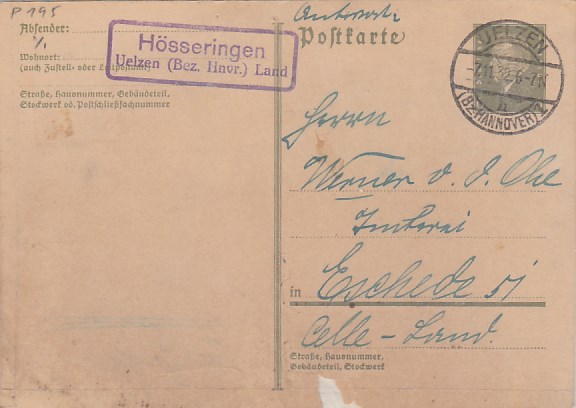 P 195
Antwort-
Absender:
Postkarte
Hösseringen
Uelzen (Bez. Hnvr.) Land
Wohnort:
(auch Zustell- oder
Straße, Hausnummer, Gebäudeteil,
Stockwerk od. Postschließfachnummer
UELZEN
-7.11.32.6-7N
(BZ. HANNOVER)
Herrn
Werner v. d. Ohe
Imkerei
in Eschede 51
Celle-Land.
Straße, Hausnummer,
Gebäudeteil, Stockwerk